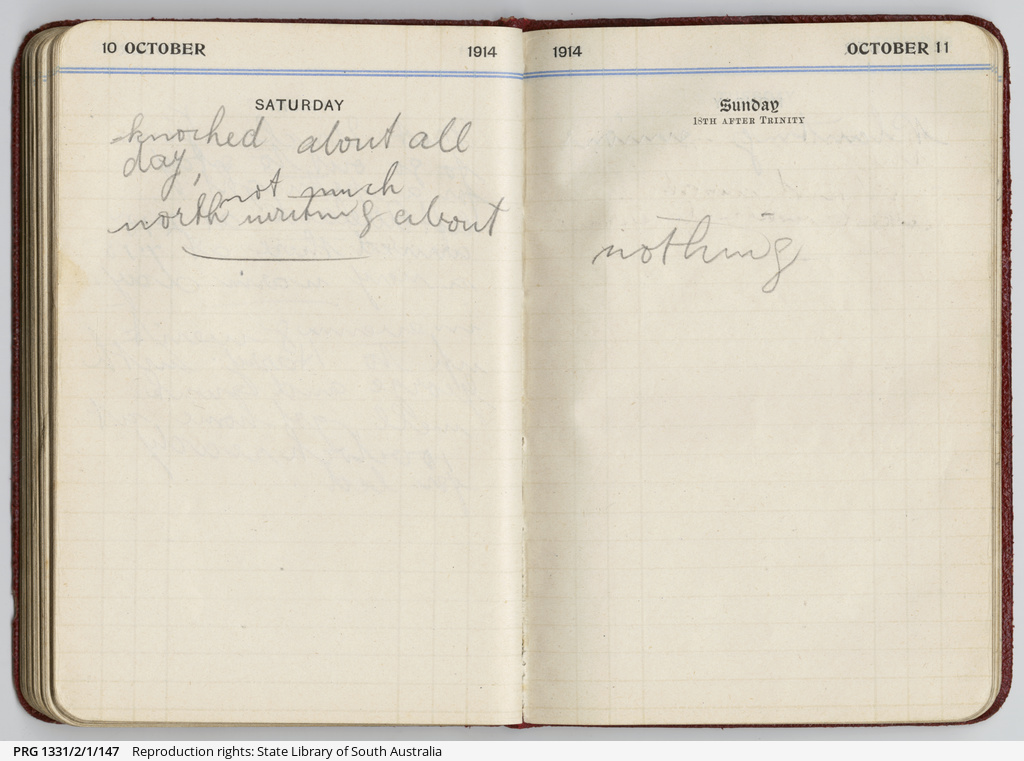 10 OCTOBER 1914
SATURDAY
knocked about all
day,
not much
worth writing about
1914 OCTOBER 11
Sunday
18TH AFTER TRINITY
nothing
PRG 1331/2/1/147 Reproduction rights: State Library of South Australia